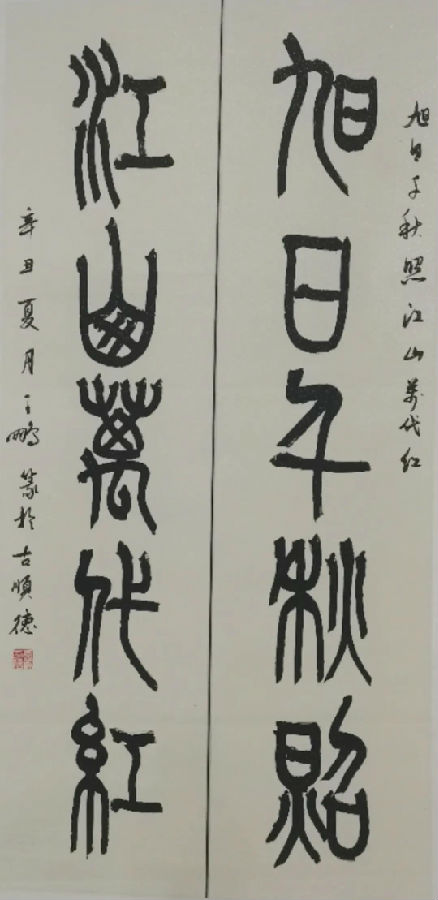 旭日千秋照江山萬代红
旭日千秋照
江山萬代紅
辛丑夏月王鵬篆於古順德